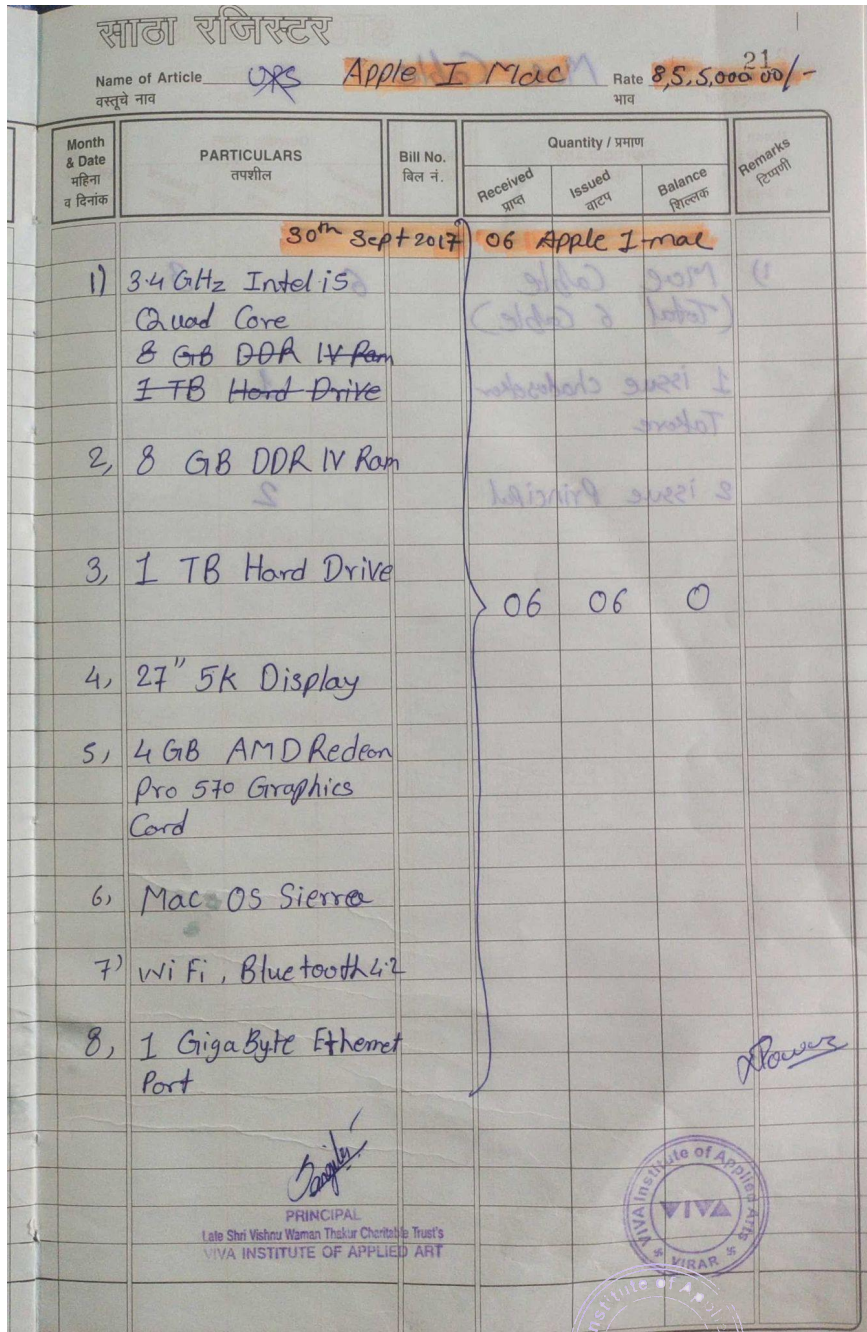 साठा रजिस्टर
21
Name of Article Apple I Mac Rate 8,5,5,000.00/-
वस्तूचे नाव भाव
Month & Date PARTICULARS Bill No. Quantity / प्रमाण Remarks
महिना व दिनांक तपशील बिल नं. Received Issued Balance टिपणी
प्राप्त वाटप शिल्लक
30th Sept 2017 06 Apple I-mac
1) 3.4 GHz Intel i5
Quad Core
8 GB DDR IV Ram
1 TB Hard Drive
2, 8 GB DDR IV Ram
3, 1 TB Hard Drive
06 06 0
4, 27" 5k Display
5, 4 GB AMD Redeon
Pro 570 Graphics
Card
6, Mac OS Sierra
7) WiFi, Bluetooth 4.2
8, 1 GigaByte Ethernet
Port
PRINCIPAL
Late Shri Vishnu Waman Thakur Charitable Trust's
VIVA INSTITUTE OF APPLIED ART
VIVA Institute of Applied Arts
VIVA
VIRAR